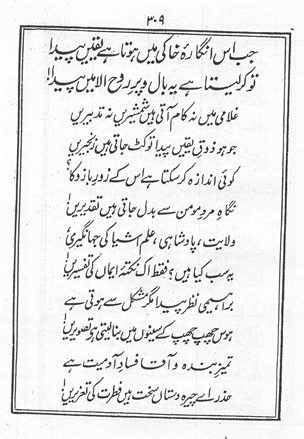 ۳۰۹
جب اس انگارۂ خاکی میں ہوتا ہے یقیں پیدا
تو کر لیتا ہے یہ بال و پرِ روح الامیں پیدا!
غلامی میں نہ کام آتی ہیں شمشیریں نہ تدبیریں
جو ہو ذوقِ یقیں پیدا تو کٹ جاتی ہیں زنجیریں
کوئی اندازہ کر سکتا ہے اس کے زورِ بازو کا؟
نگاہِ مردِ مومن سے بدل جاتی ہیں تقدیریں!
ولایت، پادشاہی، علمِ اشیا کی جہانگیری
یہ سب کیا ہیں؟ فقط اک نکتۂ ایماں کی تفسیریں!
براہیمی نظر پیدا مگر مشکل سے ہوتی ہے
ہوس چھپ چھپ کے سینوں میں بنا لیتی ہے تصویریں!
تمیزِ بندہ و آقا فسادِ آدمیت ہے
حذر اے چیرہ دستاں سخت ہیں فطرت کی تعزیریں!